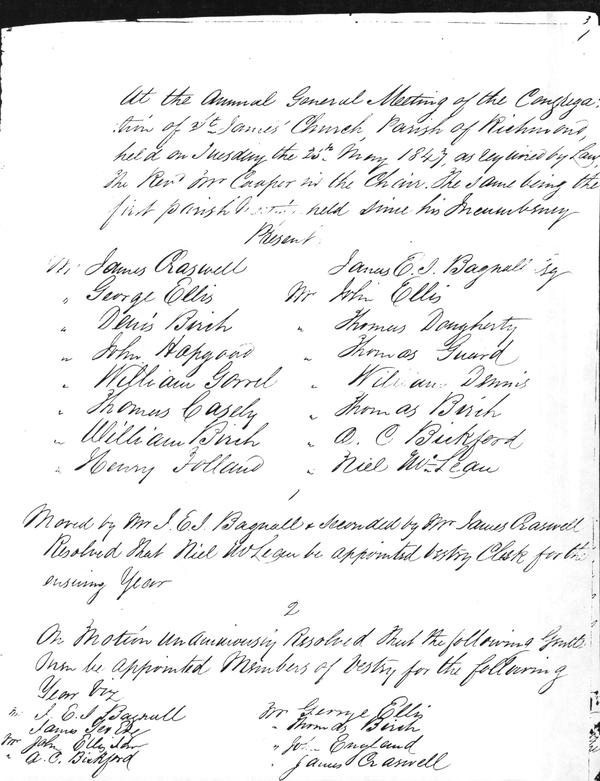 3
1
At the Annual General Meeting of the Congrega-
tion of St. James' Church, Parish of Richmond,
held on Tuesday the 25th May 1847, as required by Law,
The Revd Mr Cooper in the Chair. The same being the
first parish held since his Incumbency
Present
Mr James Craswell
" George Ellis
" Denis Birch
" John Hapgood
" William Gorrel
" Thomas Casely
" William Birch
" Henry Folland
James E. I. Bagnall Esq
Mr John Ellis
" Thomas Dougherty
" Thomas Guard
" William Dennis
" Thomas Birch
" A. C Bickford
" Niel McLean
1
Moved by Mr J. E. I. Bagnall & seconded by Mr James Craswell
Resolved that Niel McLean be appointed Vestry Clerk for the
ensuing Year
2
On Motion unanimously Resolved that the following Gentle-
men be appointed Members of Vestry for the following
Year viz
Mr J. E. I Bagnall
" James
Mr John Ellis
" A. C. Bickford
Mr George Ellis
" Thomas Birch
" England
" James Craswell